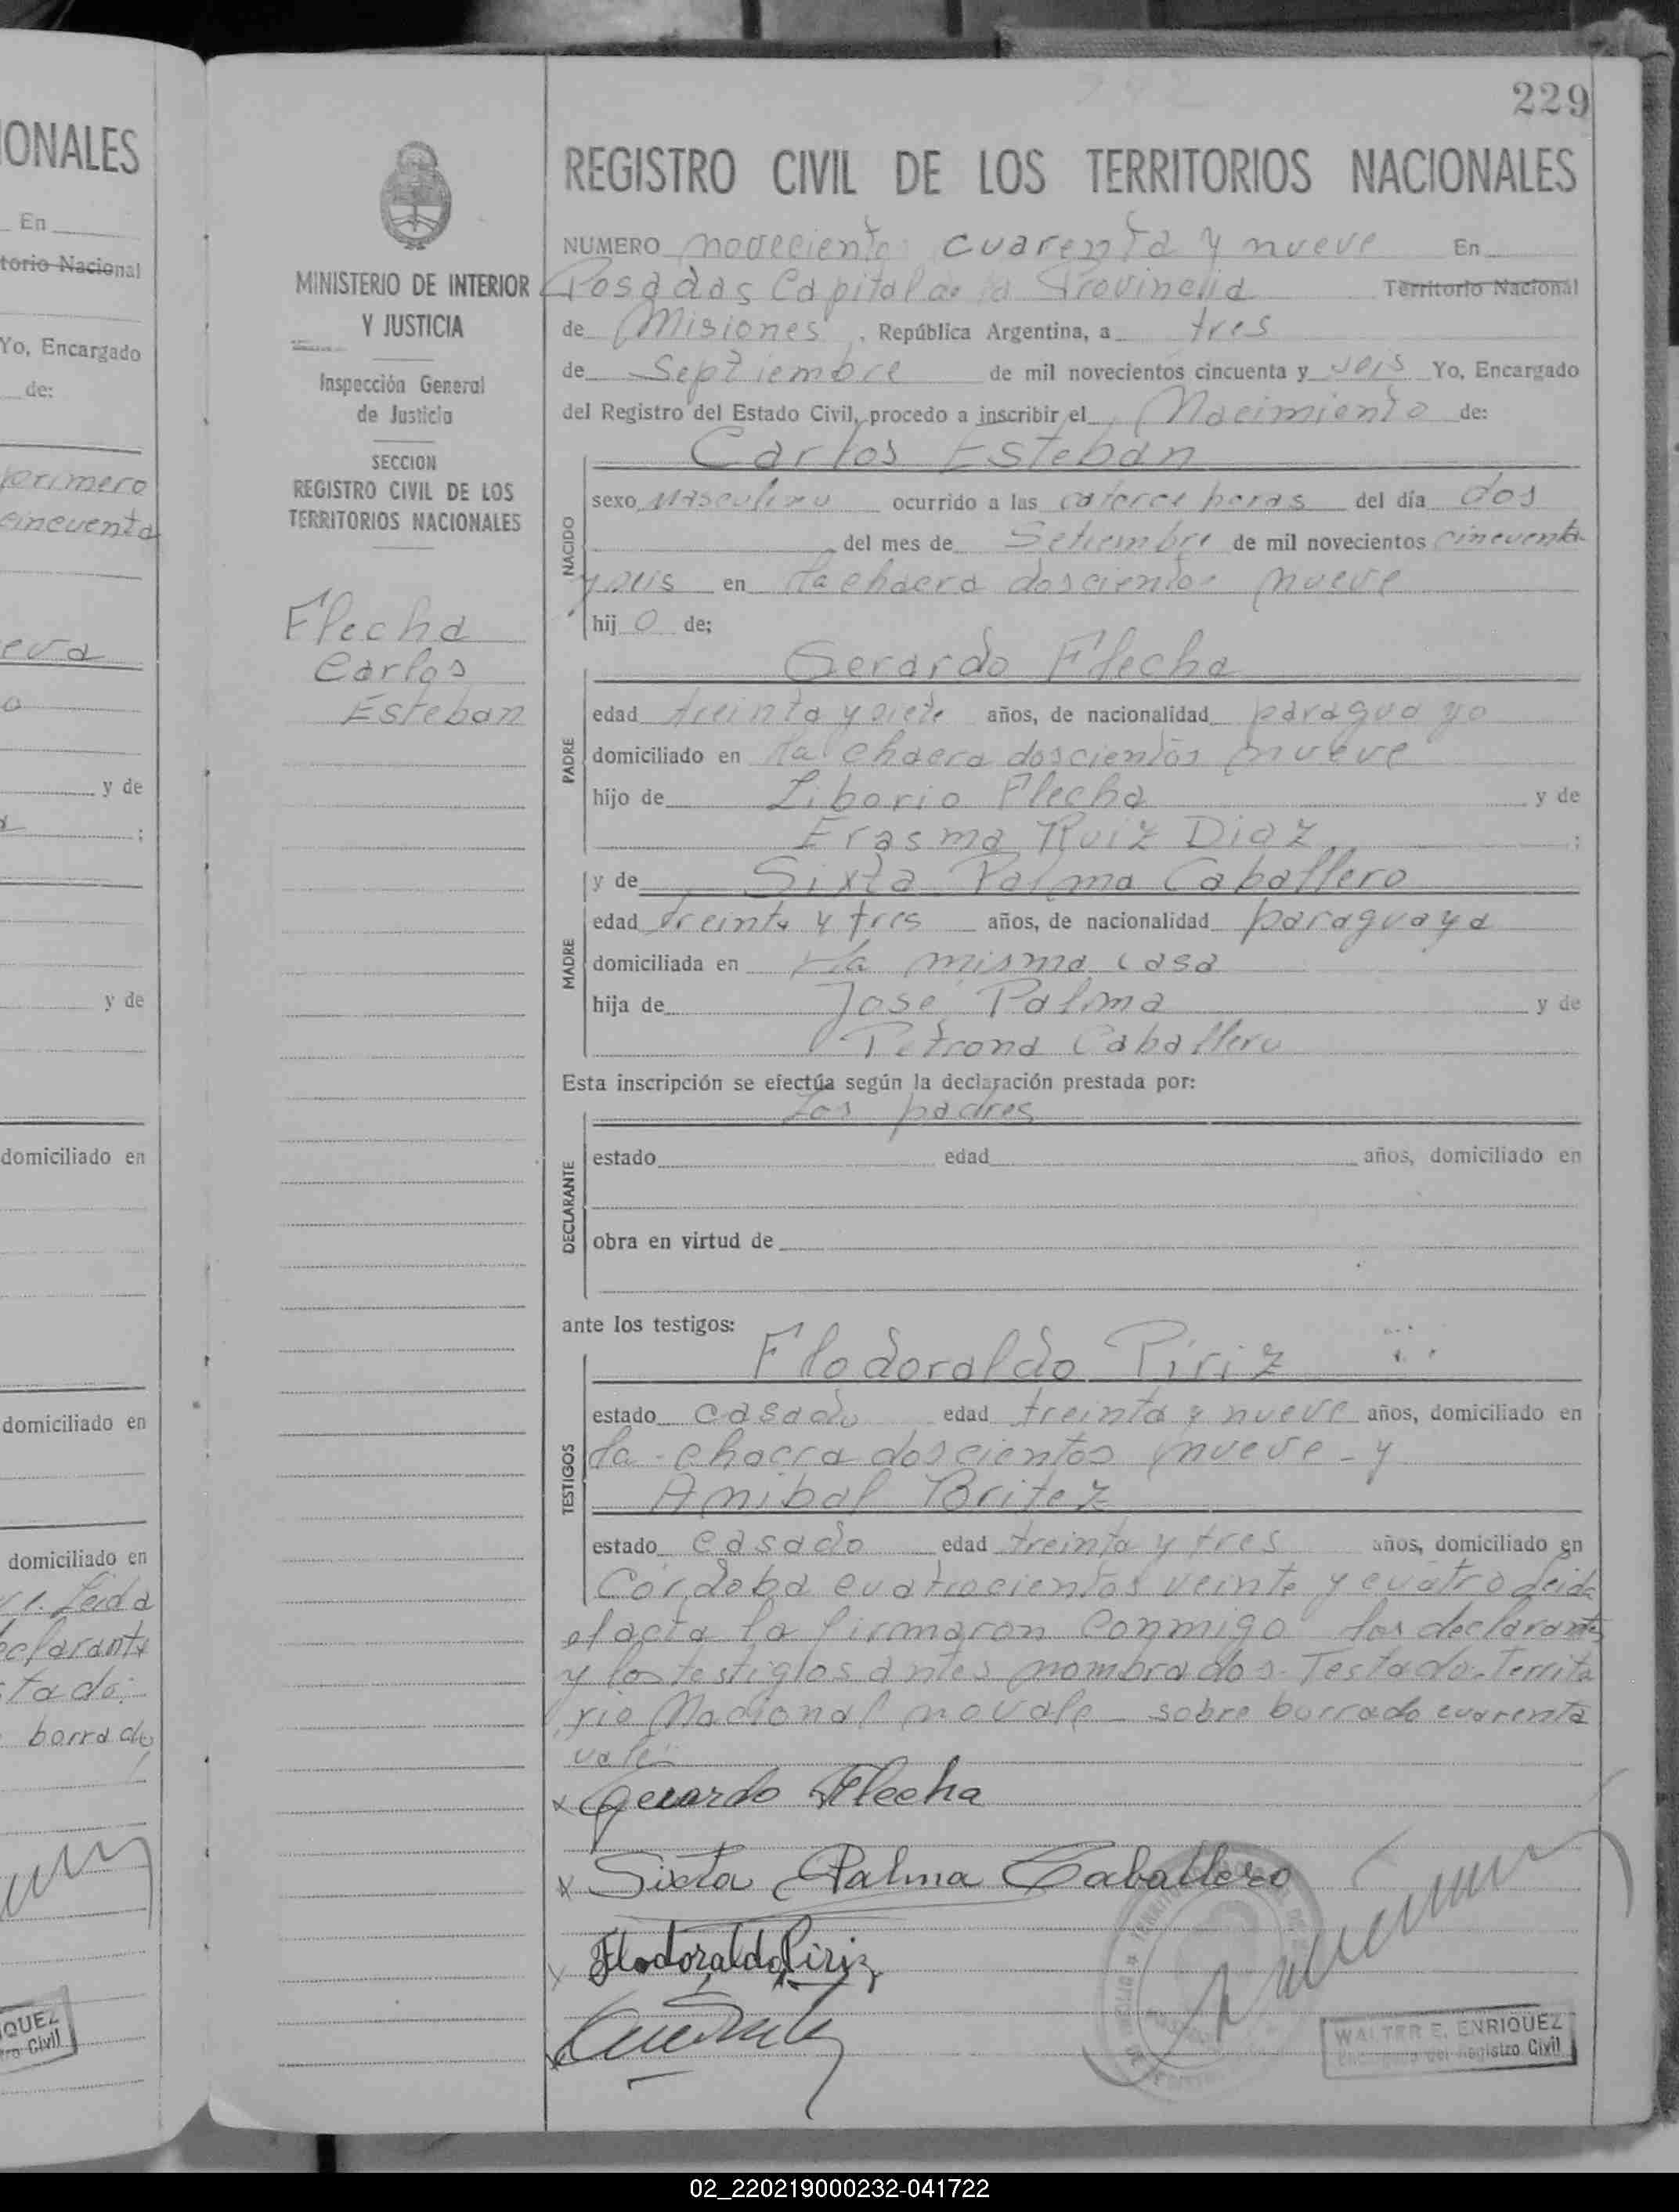 ONALES
En
torio Nacional
Yo, Encargado
de:
primero
cincuenta
eva
o
y de
y de
domiciliado en
domiciliado en
domiciliado en
Leida
eclarante
tado:
borrado
QUEZ
tro Civil
MINISTERIO DE INTERIOR
Y JUSTICIA
Inspección General
de Justicia
SECCION
REGISTRO CIVIL DE LOS
TERRITORIOS NACIONALES
Flecha
Carlos
Esteban
229
REGISTRO CIVIL DE LOS TERRITORIOS NACIONALES
NUMERO novecientos cuarenta y nueve En
Posadas Capital de la Provincia Territorio Nacional
de Misiones, República Argentina, a tres
de Septiembre de mil novecientos cincuenta y seis Yo, Encargado
del Registro del Estado Civil, procedo a inscribir el Nacimiento de:
Carlos Esteban
NACIDO
sexo Masculino ocurrido a las catorce horas del día dos
del mes de Setiembre de mil novecientos cincuenta
y seis en la chacra doscientos nueve
hij o de;
Gerardo Flecha
PADRE
edad treinta y siete años, de nacionalidad paraguayo
domiciliado en la chacra doscientos nueve
hijo de Liborio Flecha y de
Erasma Ruiz Diaz ;
y de Sixta Palma Caballero
MADRE
edad treinta y tres años, de nacionalidad paraguaya
domiciliada en la misma casa
hija de José Palma y de
Petrona Caballero
Esta inscripción se efectúa según la declaración prestada por:
Los padres
DECLARANTE
estado edad años, domiciliado en
obra en virtud de
ante los testigos:
Flodoraldo Piriz
TESTIGOS
estado casado edad treinta y nueve años, domiciliado en
la chacra doscientos nueve - y
Anibal Britez
estado casado edad treinta y tres años, domiciliado en
Córdoba cuatrocientos veinte y cuatro Leida
el acta la firmaron conmigo los declarantes
y los testigos antes nombrados. Testado: Territo
rio Nacional no vale - sobre borrado cuarenta
vale.
x Gerardo Flecha
x Sixta Palma Caballero
x Flodoraldo Piriz
WALTER E. ENRIQUEZ
Encargado del Registro Civil
02_220219000232-041722